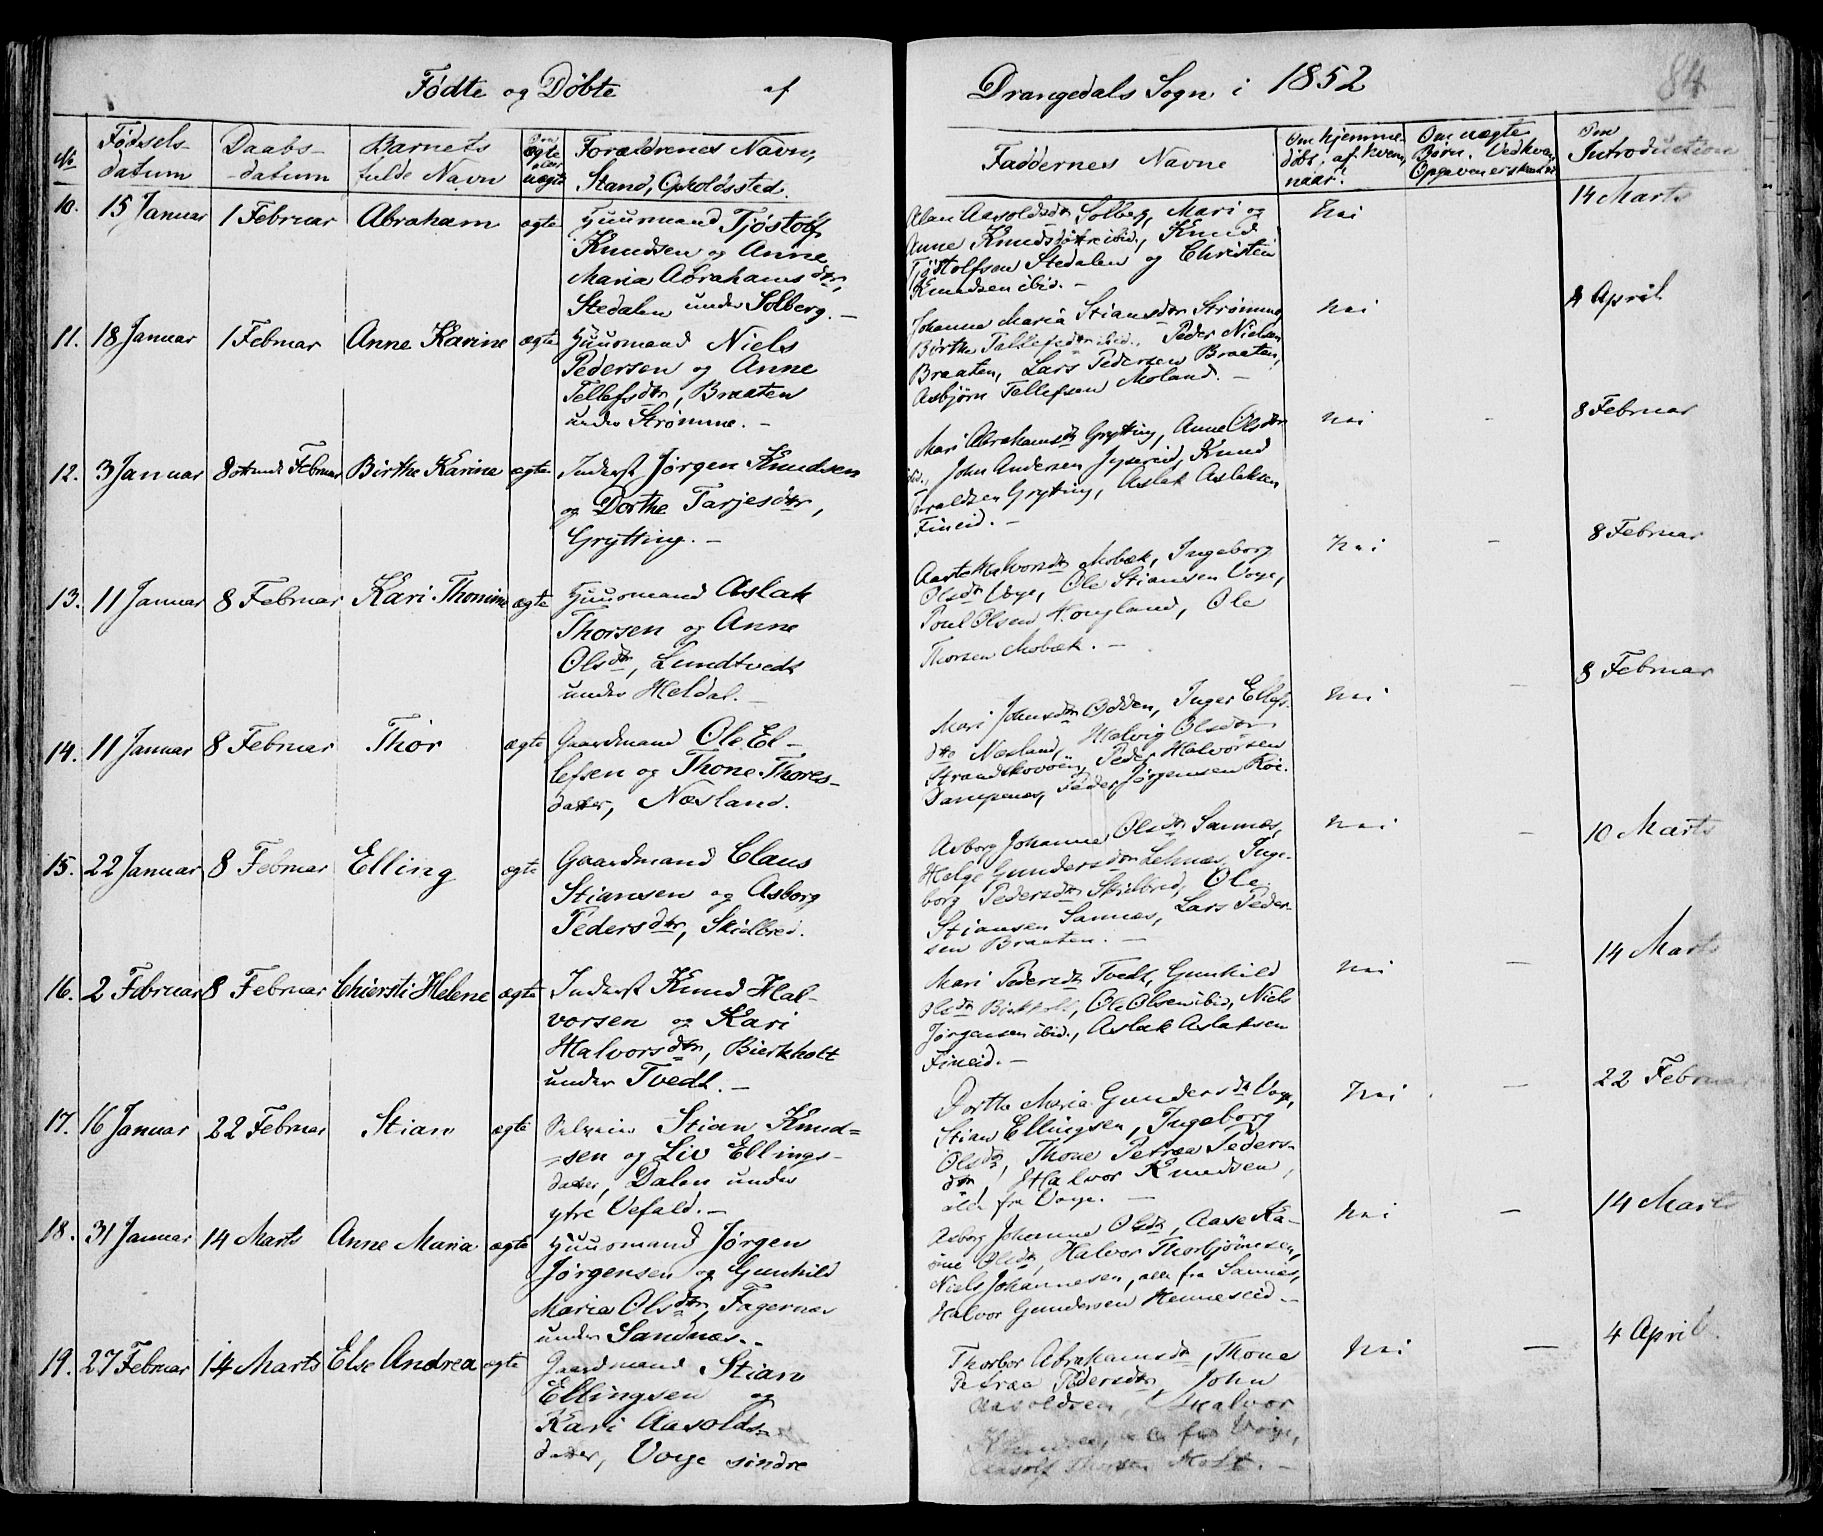 Fødte og Døbte af Drangedals Sogn i 1852
84
№
Fødsels-
datum
Daabs-
-datum
Barnets
fulde Navn
Om
ægte
eller
uægte
Forældrenes Navn,
Stand, Opholdssted.
Faddernes Navne
Om hjemme-
døbt, af hvem,
naar?
Om uægte
Børn.
Om
Introduction
10.
15 Januar
1 Februar
Abraham
ægte
Huusmand Tjøstolf
Knudsen og Anne
Maria Abrahamsdtr,
Stedalen under Solberg. -
Aasoldsdtr Solberg, Mari og
Anne Knudsdøtre ibid., Knud
Tjøstolfsen Stedalen og Christen
Knudsen ibid. -
Nei
14 Marts
11.
18 Januar
1 Februar
Anne Karine
ægte
Huusmand Niels
Pedersen og Anne
Tellefsdtr, Braaten
under Strømme. -
Johanne Maria Stiansdtr Strømme,
Birthe Tellefsdtr ibid., Peder Nielsen
Braaten, Lars Pedersen Braaten,
Asbjørn Tellefsen Moland. -
Nei
April
12.
3 Januar
8 Februar
Birthe Karine
ægte
Inderst Jørgen Knudsen
og Dorthe Tarjesdtr,
Grytting. -
Mari Abrahamsdtr Grytting, Anne Olsdtr
ibid., John Andersen, Knud
Grytting, Aslak Aslaksen
Fineid. -
Nei
-
8 Februar
13.
11 Januar
8 Februar
Kari Thomine
ægte
Huusmand Aslak
Thorsen og Anne
Olsdtr, Lundtvedt
under Heldal. -
Aaste Halvorsdtr Mobæk, Ingeborg
Olsdtr Voje, Ole Stiansen Voje,
Poul Olsen Hougland, Ole
Thorsen Mobæk. -
Nei
-
8 Februar
14.
11 Januar
8 Februar
Thor
ægte
Gaardmand Ole El-
lefsen og Thone Thores-
datter, Næsland.
Mari Johnsdtr Odden, Inger Ellefs-
dtr Næsland, Halvig Olsdtr
Peder Halvorsen
Dampenæs, Peder Jørgensen
Nei
-
8 Februar
15.
22 Januar
8 Februar
Elling
ægte
Gaardmand Claus
Stiansen og Asborg
Pedersdtr, Skielbred.
Asborg Johanne Olsdtr Sannæs,
Helge Gundersdtr Lehnæs, Inge-
borg Pedersdtr Skielbred, Ole
Stiansen Sannæs, Lars Peder-
sen Braaten. -
Nei
-
10 Marts
16.
2 Februar
8 Februar
Chiersti Helene
ægte
Inderst Knud Hal-
vorsen og Kari
Halvorsdtr, Bierkholt
under Tvedt. -
Mari Pedersdtr Tvedt, Gunhild
Olsdtr Birkholt, Ole Olsen ibid, Niels
Jørgensen ibid., Aslak Aslaksen
Fineid. -
Nei
-
14 Marts
17.
16 Januar
22 Februar
Stian
ægte
Selveier Stian Knud-
-sen og Liv Ellings-
datter, Dalen under
ytre Vefald. -
Dorthe Maria Gundersdtr Voje,
Stian Ellingsen, Ingeborg
Olsdtr, Thone Petrea Peders-
dtr, Halvor Knudsen,
alle fra Voje. -
Nei
-
22 Februar
18.
31 Januar
14 Marts
Anne Maria
ægte
Huusmand Jørgen
Jørgensen og Gunhild
Maria Olsdtr, Fagernæs
under Sandnæs. -
Asborg Johanne Olsdtr, Aase Ka-
rine Olsdtr, Halvor Thorbjørnsen,
Niels Johannesen, alle fra Sannæs,
Halvor Gundersen Henneseid -
Nei
-
14 Marts
19.
27 Februar
14 Marts
Else Andrea
ægte
Gaardmand Stian
Ellingsen og
Kari Aasolds-
datter, Voje søndre
Thorbor Abrahamsdtr, Thone
Petrea Pedersdtr, John
Aasoldsen, Halvor
Knudsen, alle fra Voje,
Aasold Thorsen -
Nei
-
4 April